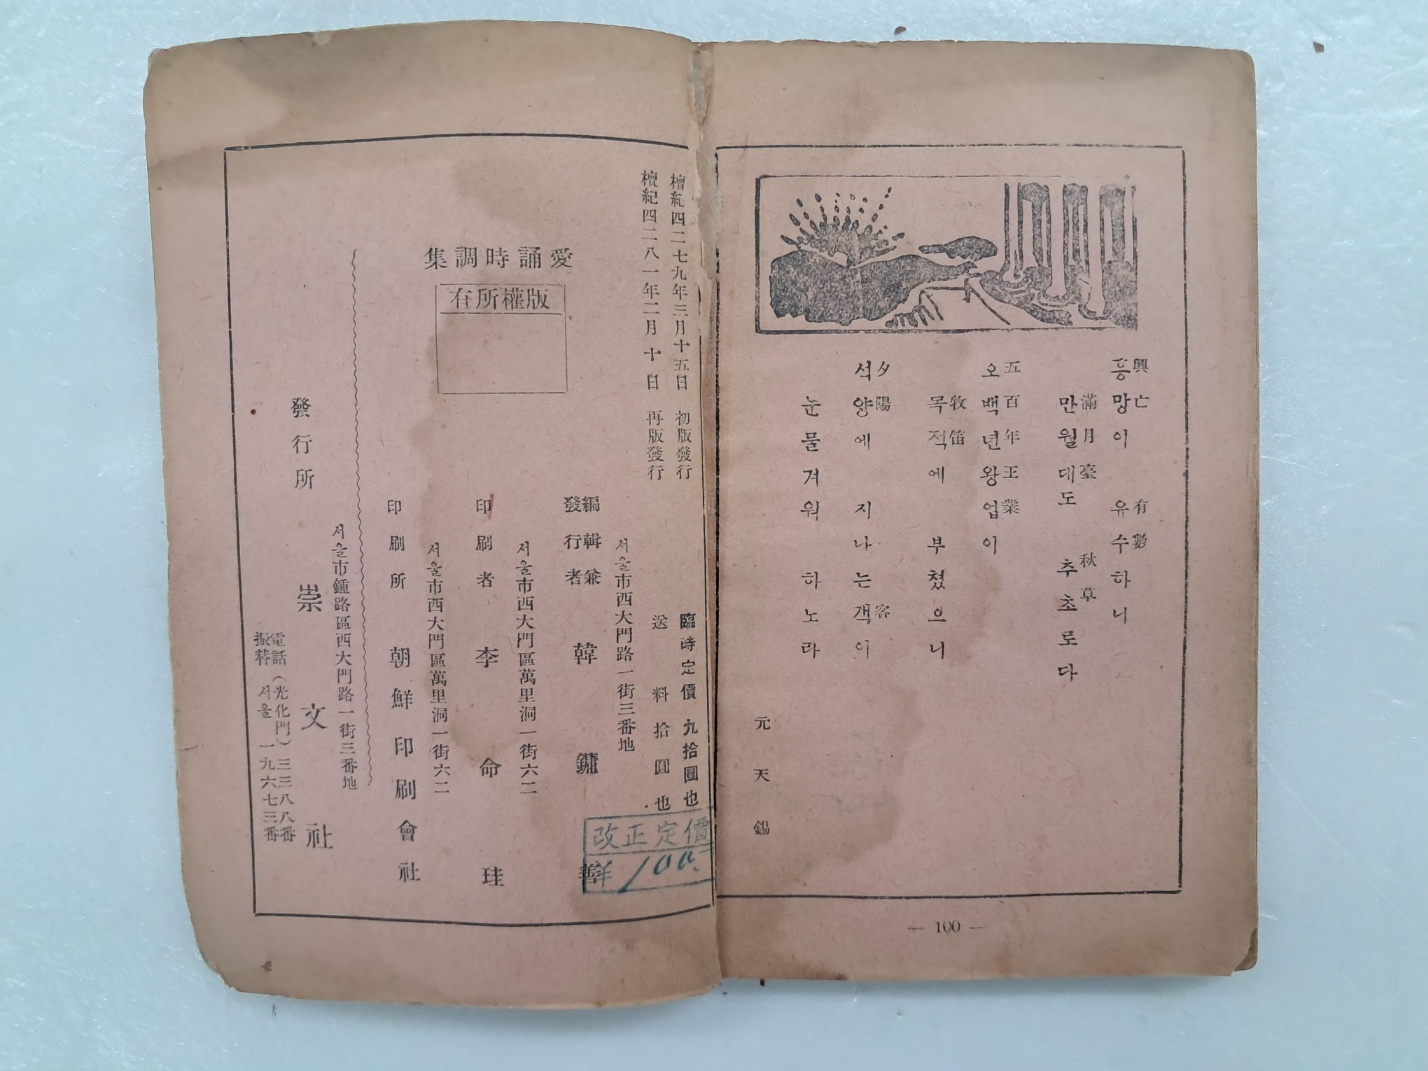 興亡 有數
흥망이 유수하니
滿月臺 秋草
만월대도 추초로다
五百年王業
오백년왕업이
牧笛
목적에 부쳤으니
夕陽 客
석양에 지나는객이
눈물겨워 하노라
元天錫
— 100 —
檀紀四二七九年三月十五日 初版發行
檀紀四二八一年二月十日 再版發行
臨時定價 九拾圓也
送料拾圓也
改正定價
100.
愛誦時調集
版權所有
서울市西大門路一街三番地
編輯兼
發行者 韓鏞善
서울市西大門區萬里洞一街六二
印刷者 李命珪
서울市西大門區萬里洞一街六二
印刷所 朝鮮印刷會社
서울市鍾路區西大門路一街三番地
發行所 崇文社
電話(光化門)三三八八番
振替 서울一九六七三番